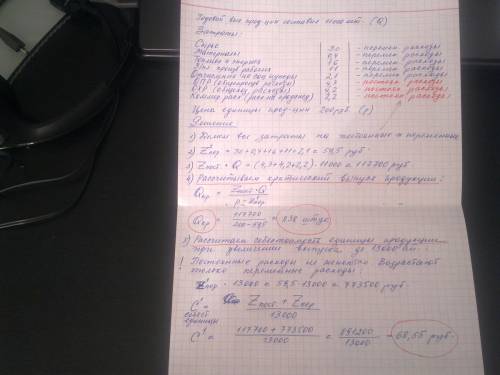 Годовой вып. прод-ции составил 11000 шт. (Q)
Затраты:
Сырье 30 - перемен. расходы
Материалы - перемен. расходы
Топливо и энергия - перемен. расходы
- перемен. расходы
Отчисления на соц. нужды 2,1 - перемен. расходы
ОПР (общепроизв. расходы) - постоян. расходы
ОХР (общехоз. расходы) - постоян. расходы
Коммер. расх. (расх. на продажу) 2,2 - постоян. расходы
Цена единицы прод-ции 200 руб. (p)
Решение
1) Делим все затраты на постоянные и переменные
2) Z'пер = 30 + + 11 + 2,1 = 59,5 руб.
3) Zпост · Q = (4,3+4,2+2,2) · 11000 = 117700 руб
4) Рассчитываем критический выпуск продукции:
Qкр = Zпост · Q
p - Z'пер
Qкр = 117700 = 838 штук
200 - 59,5
5) Рассчитаем себестоимость единицы продукции
при увеличении выпуска до 13000 шт.
! Постоянные расходы не меняются. Возрастают
только переменные расходы:
Z'пер · 13000 = 59,5 · 13000 = 773500 руб.
C' = Zпост + Zпер
себест. 13000
единицы
C' = 117700 + 773500 = 891200 = 68,55 руб.
13000 13000